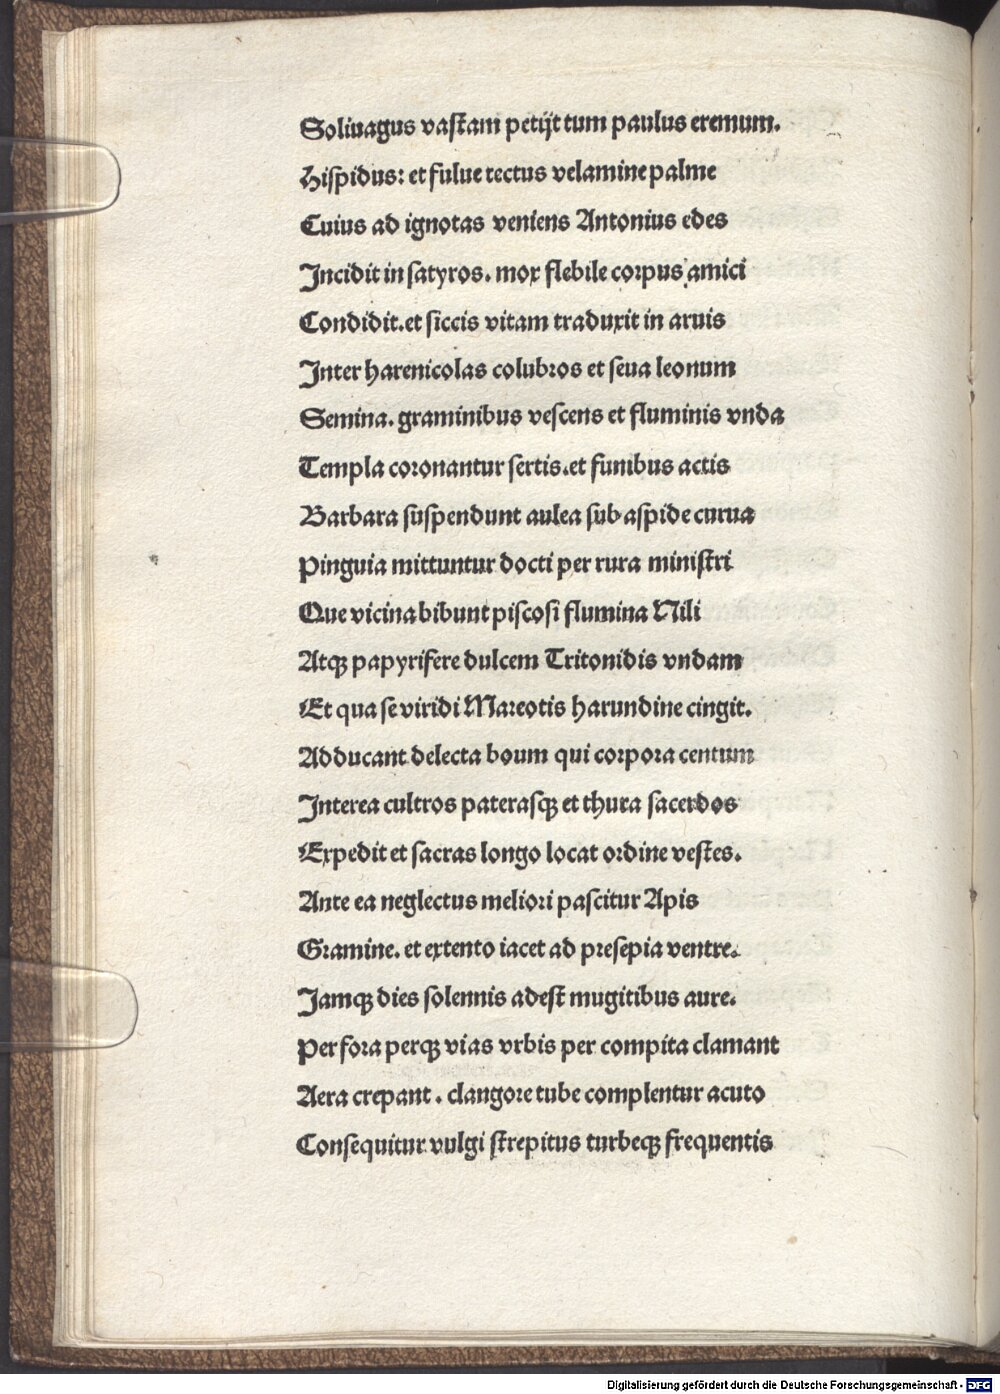 Soliuagus vastam petijt tum paulus eremum.
Hispidus: et fulue tectus velamine palme
Cuius ad ignotas veniens Antonius edes
Incidit in satyros. mox flebile corpus amici
Condidit. et siccis vitam traduxit in aruis
Inter harenicolas colubros et seua leonum
Semina. graminibus vescens et fluminis vnda
Templa coronantur sertis. et funibus actis
Barbara suspendunt aulea sub aspide curua
Pinguia mittuntur docti per rura ministri
Que vicina bibunt piscosi flumina Nili
Atqꝫ papyrifere dulcem Tritonidis vndam
Et qua se viridi Mareotis harundine cingit.
Adducant delecta boum qui corpora centum
Interea cultros paterasqꝫ et thura sacerdos
Expedit et sacras longo locat ordine vestes.
Ante ea neglectus meliori pascitur Apis
Gramine. et extento iacet ad presepia ventre.
Jamqꝫ dies solennis adest mugitibus aure.
Per fora perqꝫ vias vrbis per compita clamant
Aera crepant. clangore tube complentur acuto
Consequitur vulgi strepitus turbeqꝫ frequentis
Digitalisierung gefördert durch die Deutsche Forschungsgemeinschaft - DFG